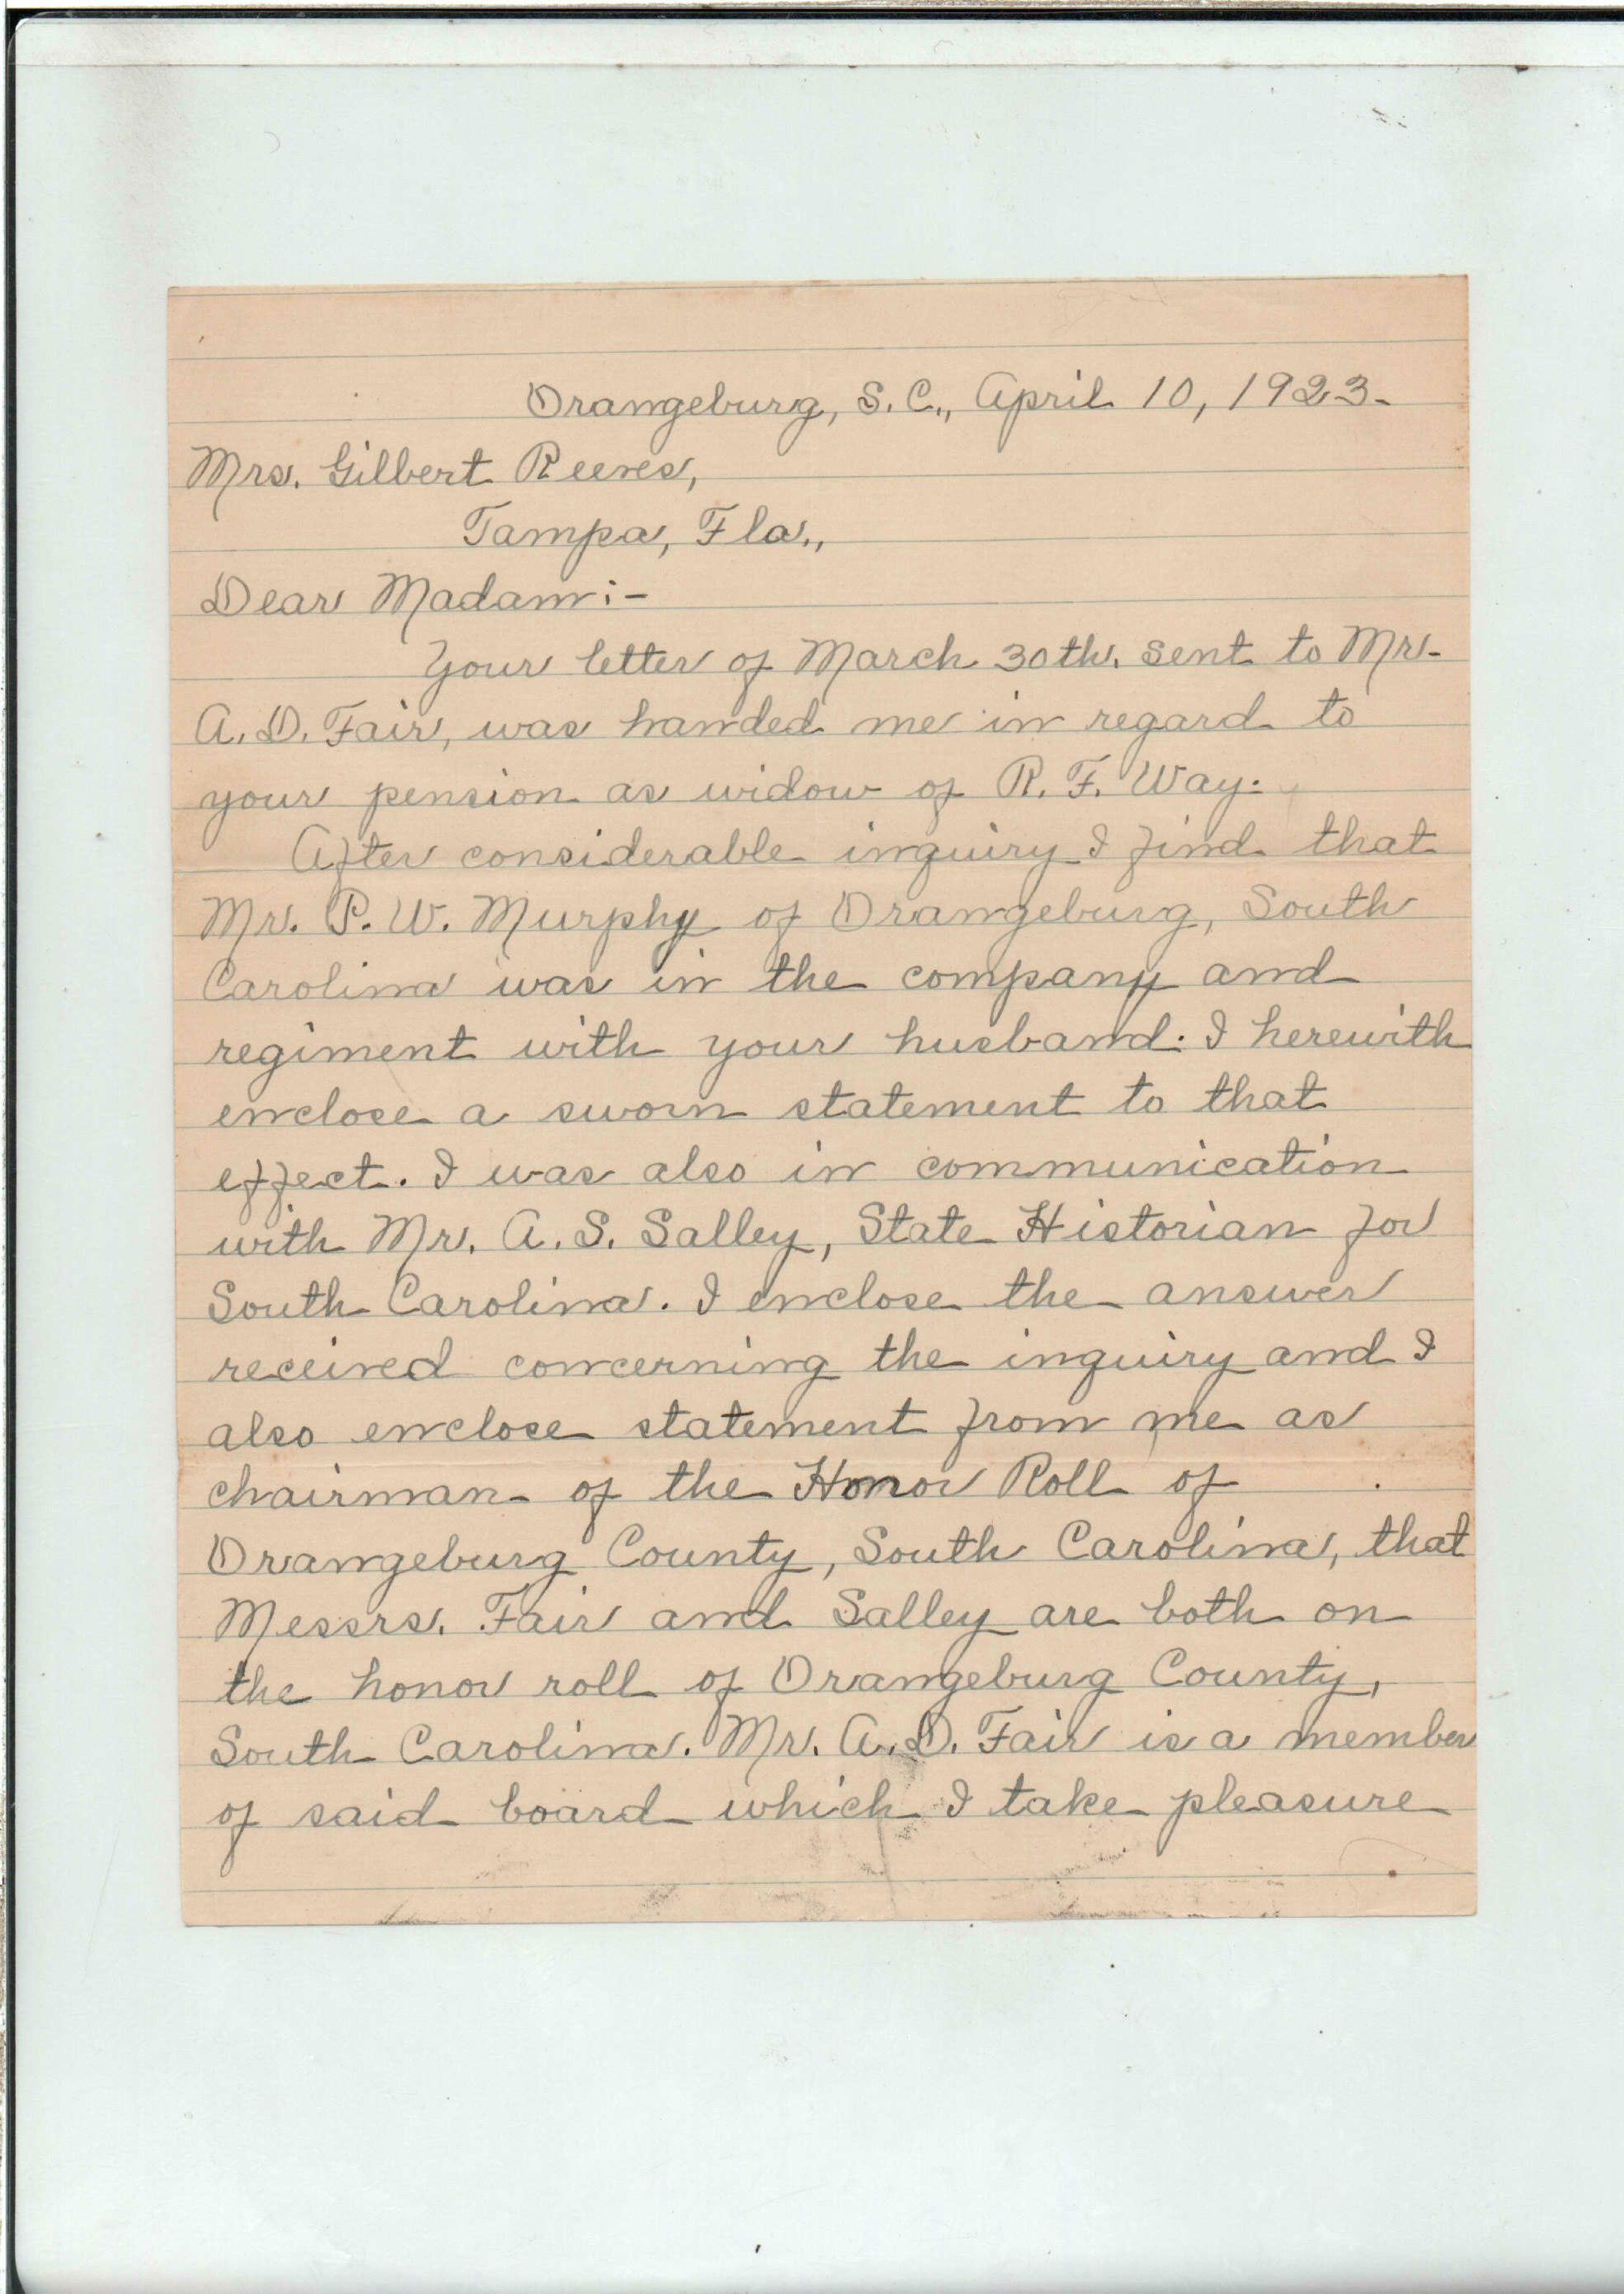 Orangeburg, S.C., April 10, 1923-
Mrs. Gilbert Reeves,
Tampa, Fla.,
Dear Madam:-
Your letter of March 30th. sent to Mr-
A.D. Fair, was handed me in regard to
your pension as widow of R. F. Way.
After considerable inquiry I find that
Mr. P. W. Murphy of Orangeburg, South
Carolina was in the company and
regiment with your husband. I herewith
enclose a sworn statement to that
effect. I was also in communication
with Mr. A. S. Salley, State Historian for
South Carolina. I enclose the answer
received concerning the inquiry and I
also enclose statement from me as
chairman of the Honor Roll of
Orangeburg County, South Carolina, that
Messrs. Fair and Salley are both on
the honor roll of Orangeburg County,
South Carolina. Mr. A.D. Fair is a member
of said board which I take pleasure